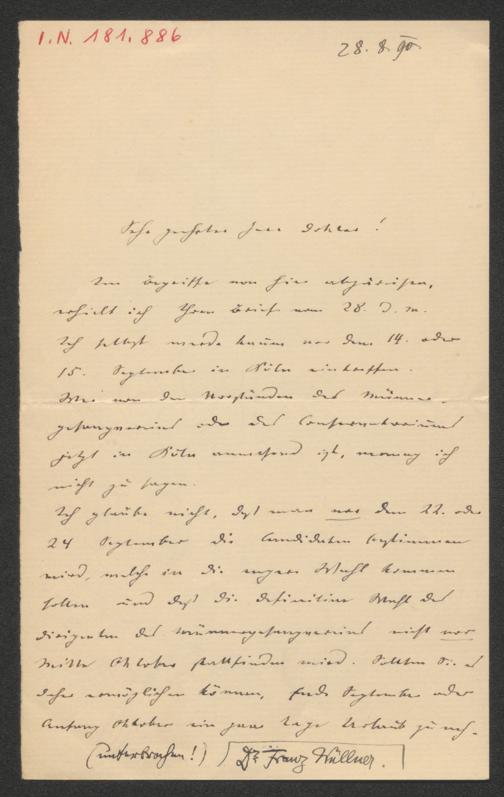 I.N. 181.886
28.8.90.
Sehr geehrter Herr Doktor!
Im Begriffe von hier abzureisen,
erhielt ich Ihren Brief vom 28. d. m.
Ich selbst werde kaum vor dem 14. oder
15. September in Köln eintreffen.
Wer von den Vorständen des Männer-
gesangvereins oder des Conservatoriums
jetzt in Köln anwesend ist, vermag ich
nicht zu sagen.
Ich glaube nicht, daß man vor dem 22. oder
24 September die Candidaten bestimmen
wird, welche in die engere Wahl kommen
sollen und daß die definitive Wahl des
Dirigenten des Männergesangvereins nicht vor
Mitte Oktober stattfinden wird. Sollten Sie es
daher ermöglichen können, Ende September oder
Anfang Oktober ein paar Tage Urlaub zu neh-
(unterbrochen!) Dr. Franz Wüllner.